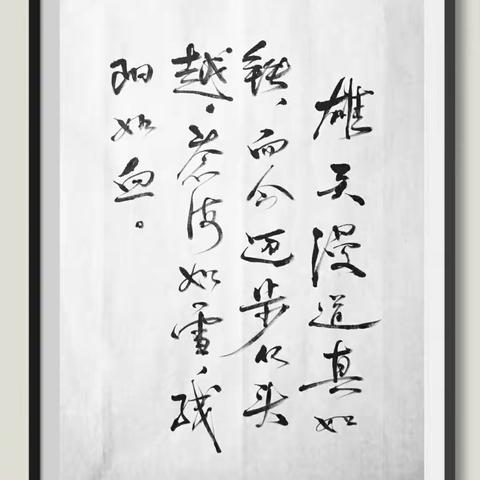 雄关漫道真如
铁,而今迈步从头
越。苍海如雪,残
阳如血。